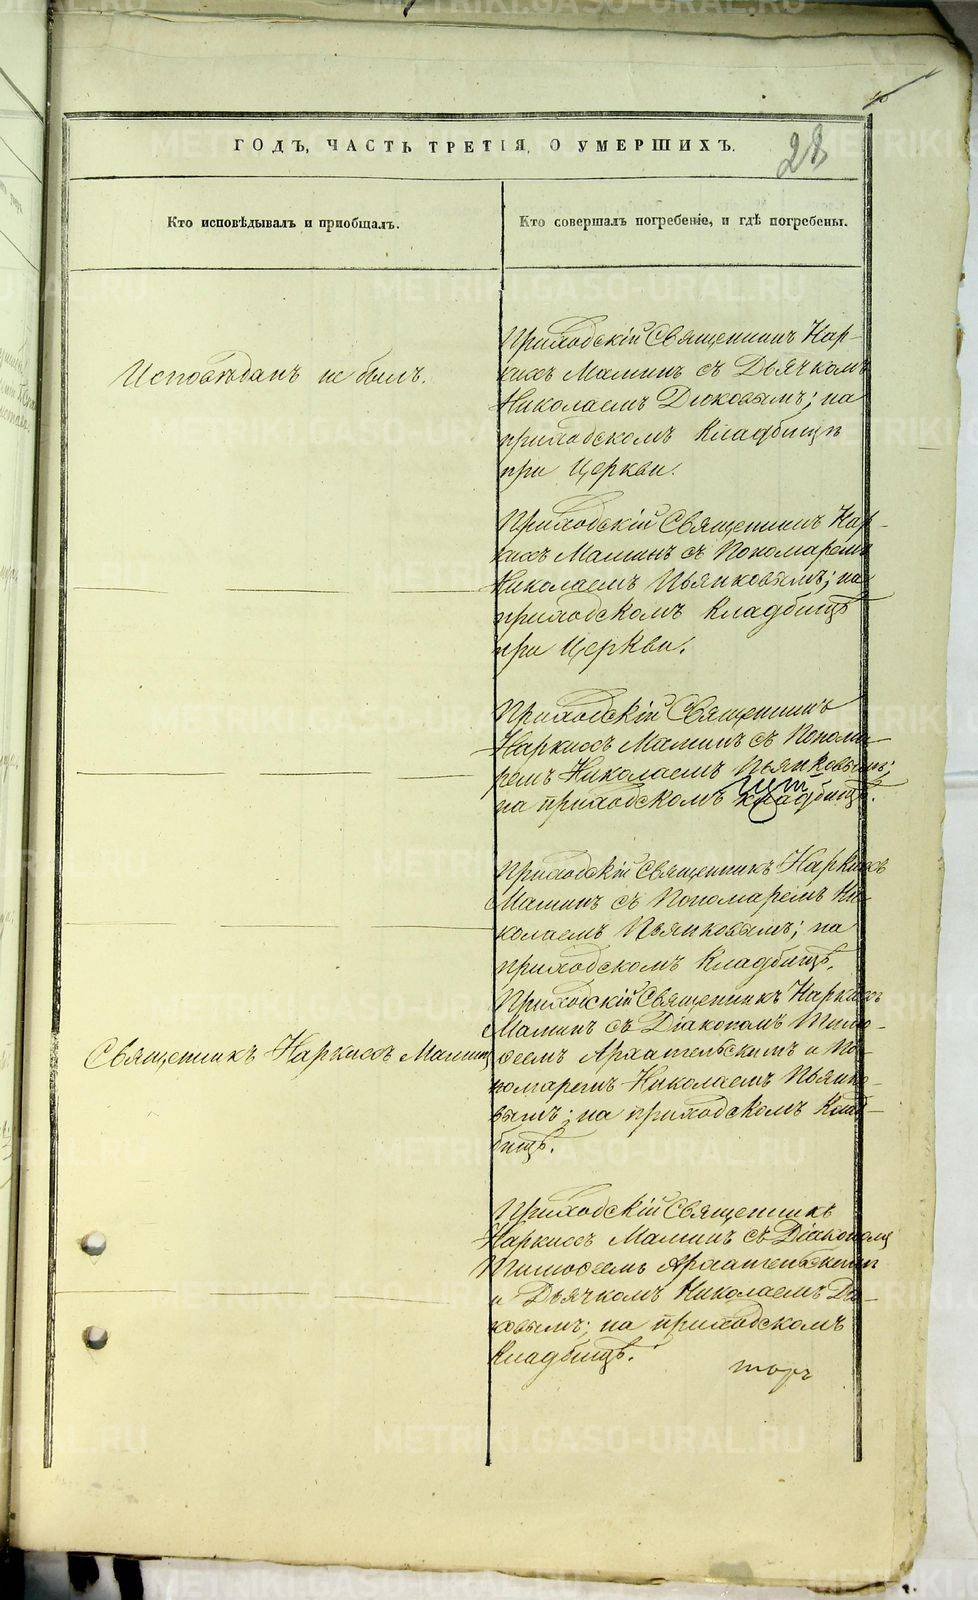 28
ГОДЪ, ЧАСТЬ ТРЕТІЯ, О УМЕРШИХЪ.
Кто исповѣдывалъ и пріобщалъ.
Кто совершалъ погребеніе, и гдѣ погребены.
Исповѣданъ не былъ.
Приходскій Священникъ Нар-
кисъ Маминъ съ Дьячкомъ
Николаемъ Дюковымъ; на
приходскомъ кладбищѣ
при Церкви.
Приходскій Священникъ Нар-
кисъ Маминъ съ Пономаремъ
Николаемъ Пьянковымъ; на
приходскомъ кладбищѣ
при Церкви.
Приходскій Священникъ
Наркисъ Маминъ съ Понома-
ремъ Николаемъ Пьянковымъ;
на приходскомъ кладбищѣ.
Приходскій Священникъ Наркисъ
Маминъ съ Пономаремъ Ни-
колаемъ Пьянковымъ; на
приходскомъ кладбищѣ.
Священникъ Наркисъ Маминъ
Приходскій Священникъ Наркисъ
Маминъ съ Діакономъ Тимо-
ѳеемъ Архангельскимъ и По-
номаремъ Николаемъ Пьянко-
вымъ; на приходскомъ клад-
бищѣ.
Приходскій Священникъ
Наркисъ Маминъ съ Діакономъ
Тимоѳеемъ Архангельскимъ
и Дьячкомъ Николаемъ Дю-
ковымъ; на приходскомъ
кладбищѣ.
METRIKI.GASO-URAL.RU